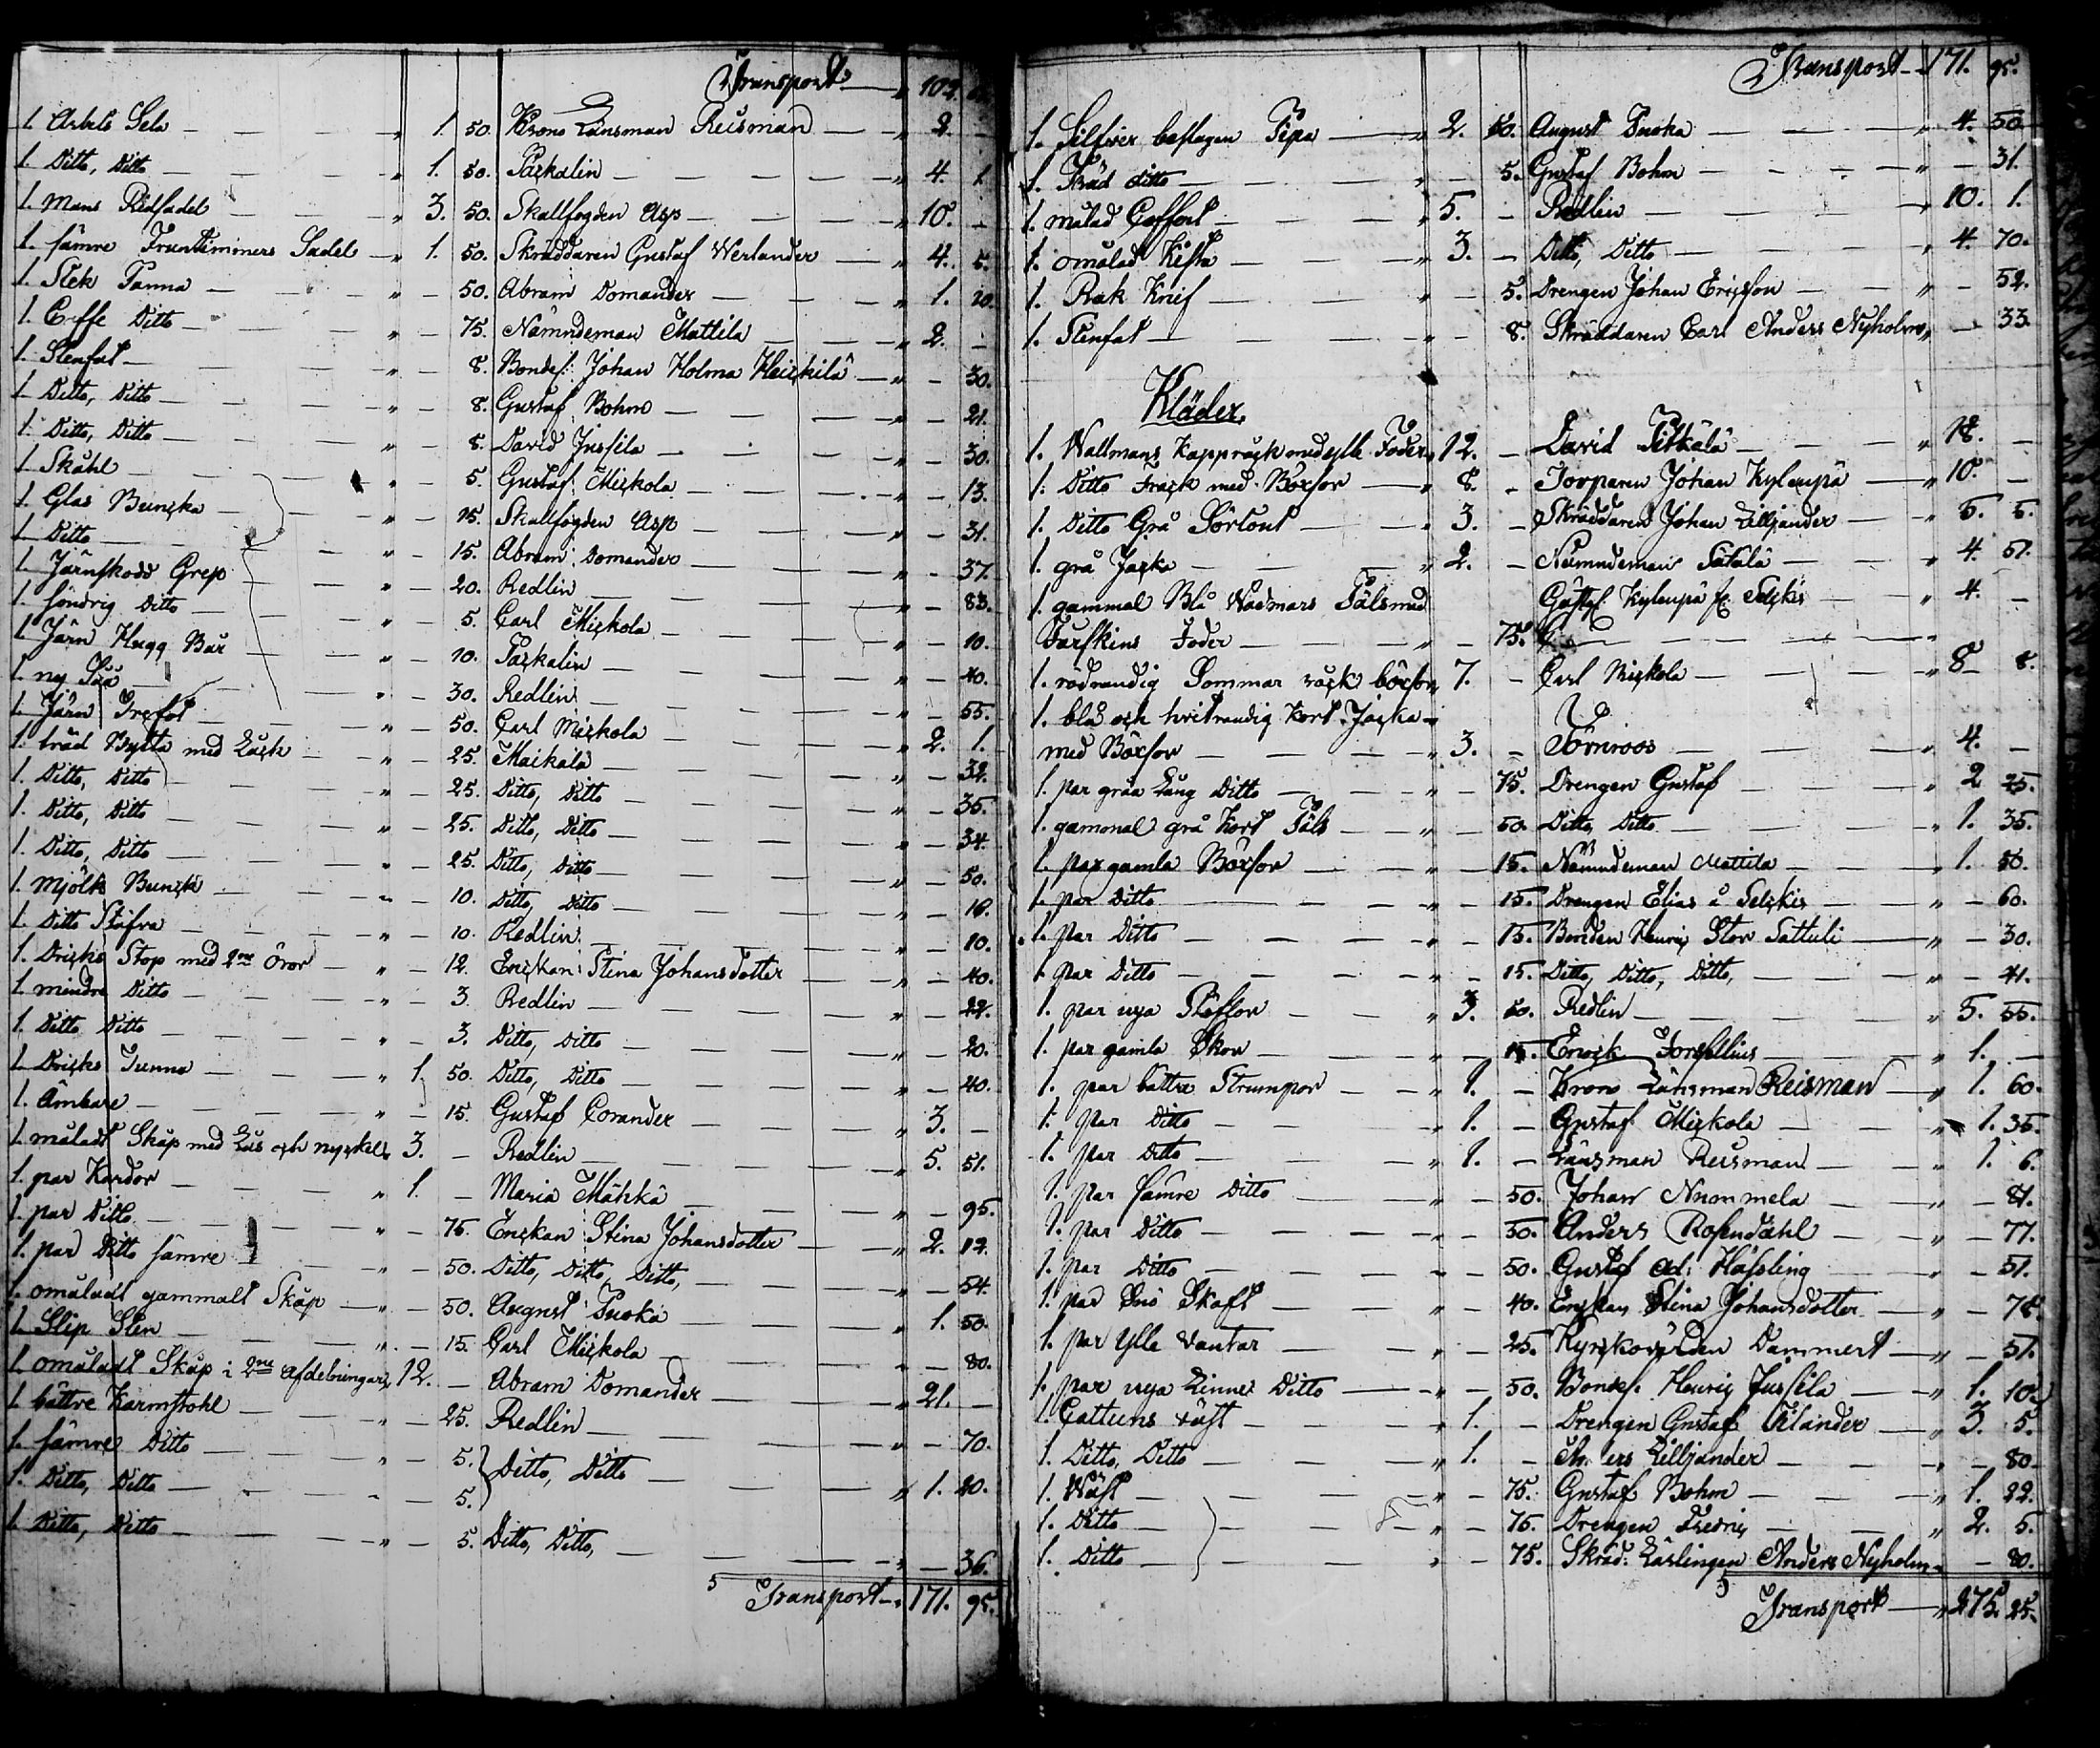 Transport 103.
1. Arbets Sela " 1. 50. Krono Länsman Reisman " 2. -
1. Ditto, Ditto " 1. 50. Paçkalin " 4. 1.
1. Mans Ridsadel " 3. 50. Skallfogden Asp " 10. -
1. sämre Fruntimmers Sadel " 1. 50. Skräddaren Gustaf Werlander " 4. 5.
1. Stek Panna " - 50. Abram Domander " 1. 20.
1. Caffe Ditto " - 75. Nämndeman Mattila " 2. -
1. Stenfat " - 8. Bondes. Johan Holma Heickilä " - 30.
1. Ditto, Ditto " - 8. Gustaf Bohm " - 21.
1. Ditto, Ditto " - 8. David Jussila " - 30.
1. Skåhl " - 5. Gustaf Mickola " - 13.
1. Glas Bunçka " - 15. Skallfogden Asp " - 31.
1. Ditto " - 15. Abram Domander " - 37.
1. Järnskodd Grep " - 20. Redlin " - 83.
1. söndrig Ditto " - 5. Carl Mickola " - 10.
1. Järn Hugg Bär " - 10. Paçkalin " - 40.
1. ny Så " - 30. Redlin " - 55.
1. Järn Trefot " - 50. Carl Mickola " 2. 1.
1. träd Bytta med Låck " - 25. Maikala " - 32.
1. Ditto, Ditto " - 25. Ditto, Ditto " - 35.
1. Ditto, Ditto " - 25. Ditto, Ditto " - 34.
1. Ditto, Ditto " - 25. Ditto, Ditto " - 50.
1. Mjölk Bunçk " - 10. Ditto, Ditto " - 16.
1. Ditto Stäfva " - 10. Redlin " - 10.
1. Dricks Stop med 2ne Öror " - 12. Enckan Stina Johansdotter " - 40.
1. mindre Ditto " - 3. Redlin " - 22.
1. Ditto Ditto " - 3. Ditto, Ditto " - 20.
1. Dricks Tunna " 1. 50. Ditto, Ditto " - 40.
1. Ämbare " - 15. Gustaf Corander " 3. -
1. måladt Skåp med Lås och nyckel " 3. - Redlin " 5. 51.
1. par Kardor " 1. - Maria Mähkä " - 95.
1. par Ditto " - 75. Enckan Stina Johansdotter " 2. 12.
1. par Ditto sämre " - 50. Ditto, Ditto, Ditto, " - 54.
1. omåladt gammalt Skåp " - 50. August Puoka " 1. 50.
1. Slip Sten " - 15. Carl Mickola " - 80.
1. omåladt Skåp i 2ne afdelningar " 12. - Abram Domander " 21. -
1. bättre Karmstohl " - 25. Redlin " - 70.
1. sämre Ditto " - 5. Ditto, Ditto
1. Ditto, Ditto " - 5. " 1. 20.
1. Ditto, Ditto " - 5. Ditto, Ditto, " - 36.
Transport " 171. 95.
Transport 171. 95.
1. Silfver beslagen Pipa " 2. 50. August Puoka " 4. 50
1. Träd ditto " - 5. Gustaf Bohm " - 31.
1. målad Coffert " 5. - Redlin " 10. 1.
1. omålad Kista " 3. - Ditto, Ditto " 4. 70.
1. Rak Knif " - 5. Drengen Johan Ericsson " - 52.
1. Stenfat " - 8. Skräddaren Carl Anders Nyholm " - 33.
Kläder.
1. Wallmans Kappråck med ylle Foder " 12. - David Pitkälä " 18. -
1. Ditto Frack med Böxsor " 8. - Torparen Johan Kylenpä " 10. -
1. Ditto Grå Sörtout " 3. - Skräddaren Johan Lilljander " 5. 5.
1. grå Jacka " 2. - Nämndeman Satala " 4. 51.
1. gammal Blå Wadmars Päls med Gustaf Kylenpä Selckis " 4. -
Fårskins Foder " - 75.
1. rödrandig Sommar råck böxsor " 7. - Carl Mickola " 8 8.
1. blå och hvitrandig Kort Jacka
med Böxsor " 3. - Törnroos " 4. -
1. par gråa Lång Ditto " - 75. Drengen Gustaf " 2 25.
1. gammal grå Kort Päls " - 50. Ditto, Ditto " 1. 35.
1. par gamla Böxsor " - 15. Nämndeman Mattila " 1. 50.
1. par Ditto " - 15. Drengen Elias å Selckis " - 60.
1. par Ditto " - 15. Bonden Henric Stor Sattuli " - 30.
1. par Ditto " - 15. Ditto, Ditto, Ditto, " - 41.
1. par nya Stöflor " 3. 50. Redlin " 5. 55.
1. par gamla Skor " - 15. Enock Forsellius " 1. -
1. par bättre Strumpor " 1. - Krono Länsman Reisman " 1. 60.
1. par Ditto " 1. - Gustaf Mickola " 1. 35.
1. par Ditto " 1. - Länsman Reisman " 1. 6.
1. par sämre Ditto " - 50. Johan Nummela " - 81.
1. par Ditto " - 50. Anders Rosendahl " - 77.
1. par Ditto " - 50. Gustaf Ad: Hässling " - 51.
1. par Snö Skaft " - 40. Enckan Stina Johansdotter " - 78.
1. par ylle vantar " - 25. Kyrckovärden Dammert " - 51.
1. par nya Linne Ditto " - 50. Bondes. Henric Jussila " 1. 10.
1. Cattuns väst " 1. - Drengen Gustaf Filander " 3. 5.
1. Ditto, Ditto " 1. - Lilljander " - 80
1. Wäst " - 75. Gustaf Bohm " 1. 22.
1. Ditto " - 75. Drengen Fredric " 2. 5.
1. Ditto " - 75. Skräd: Lärlingen Anders Nyholm " - 80.
Transport " 275. 25.